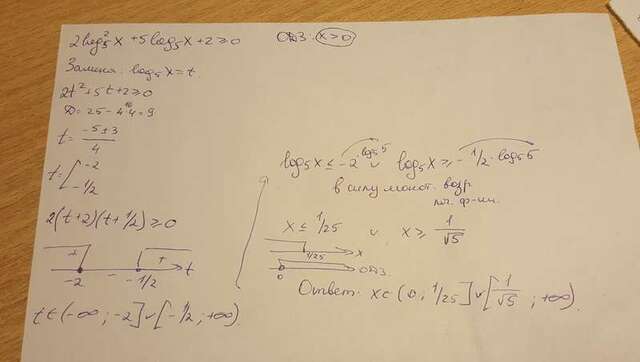 2log₅²x + 5log₅x + 2 ≥ 0
ОДЗ: x > 0
Замена: log₅x = t.
2t² + 5t + 2 ≥ 0
D = 25 - 4·4 = 9
t = (-5 ± 3)/4
t = [ -2
-1/2
2(t+2)(t+1/2) ≥ 0
+ - + t
-2 -1/2
t ∈ (-∞; -2] ∪ [-1/2; +∞)
log₅x ≤ -2·log₅5 ∪ log₅x ≥ -1/2·log₅5
в силу монот. возр.
ф-ии.
x ≤ 1/25 ∪ x ≥ 1/√5
1/25 x
0 ОДЗ.
Ответ: x ∈ (0; 1/25] ∪ [1/√5; +∞)